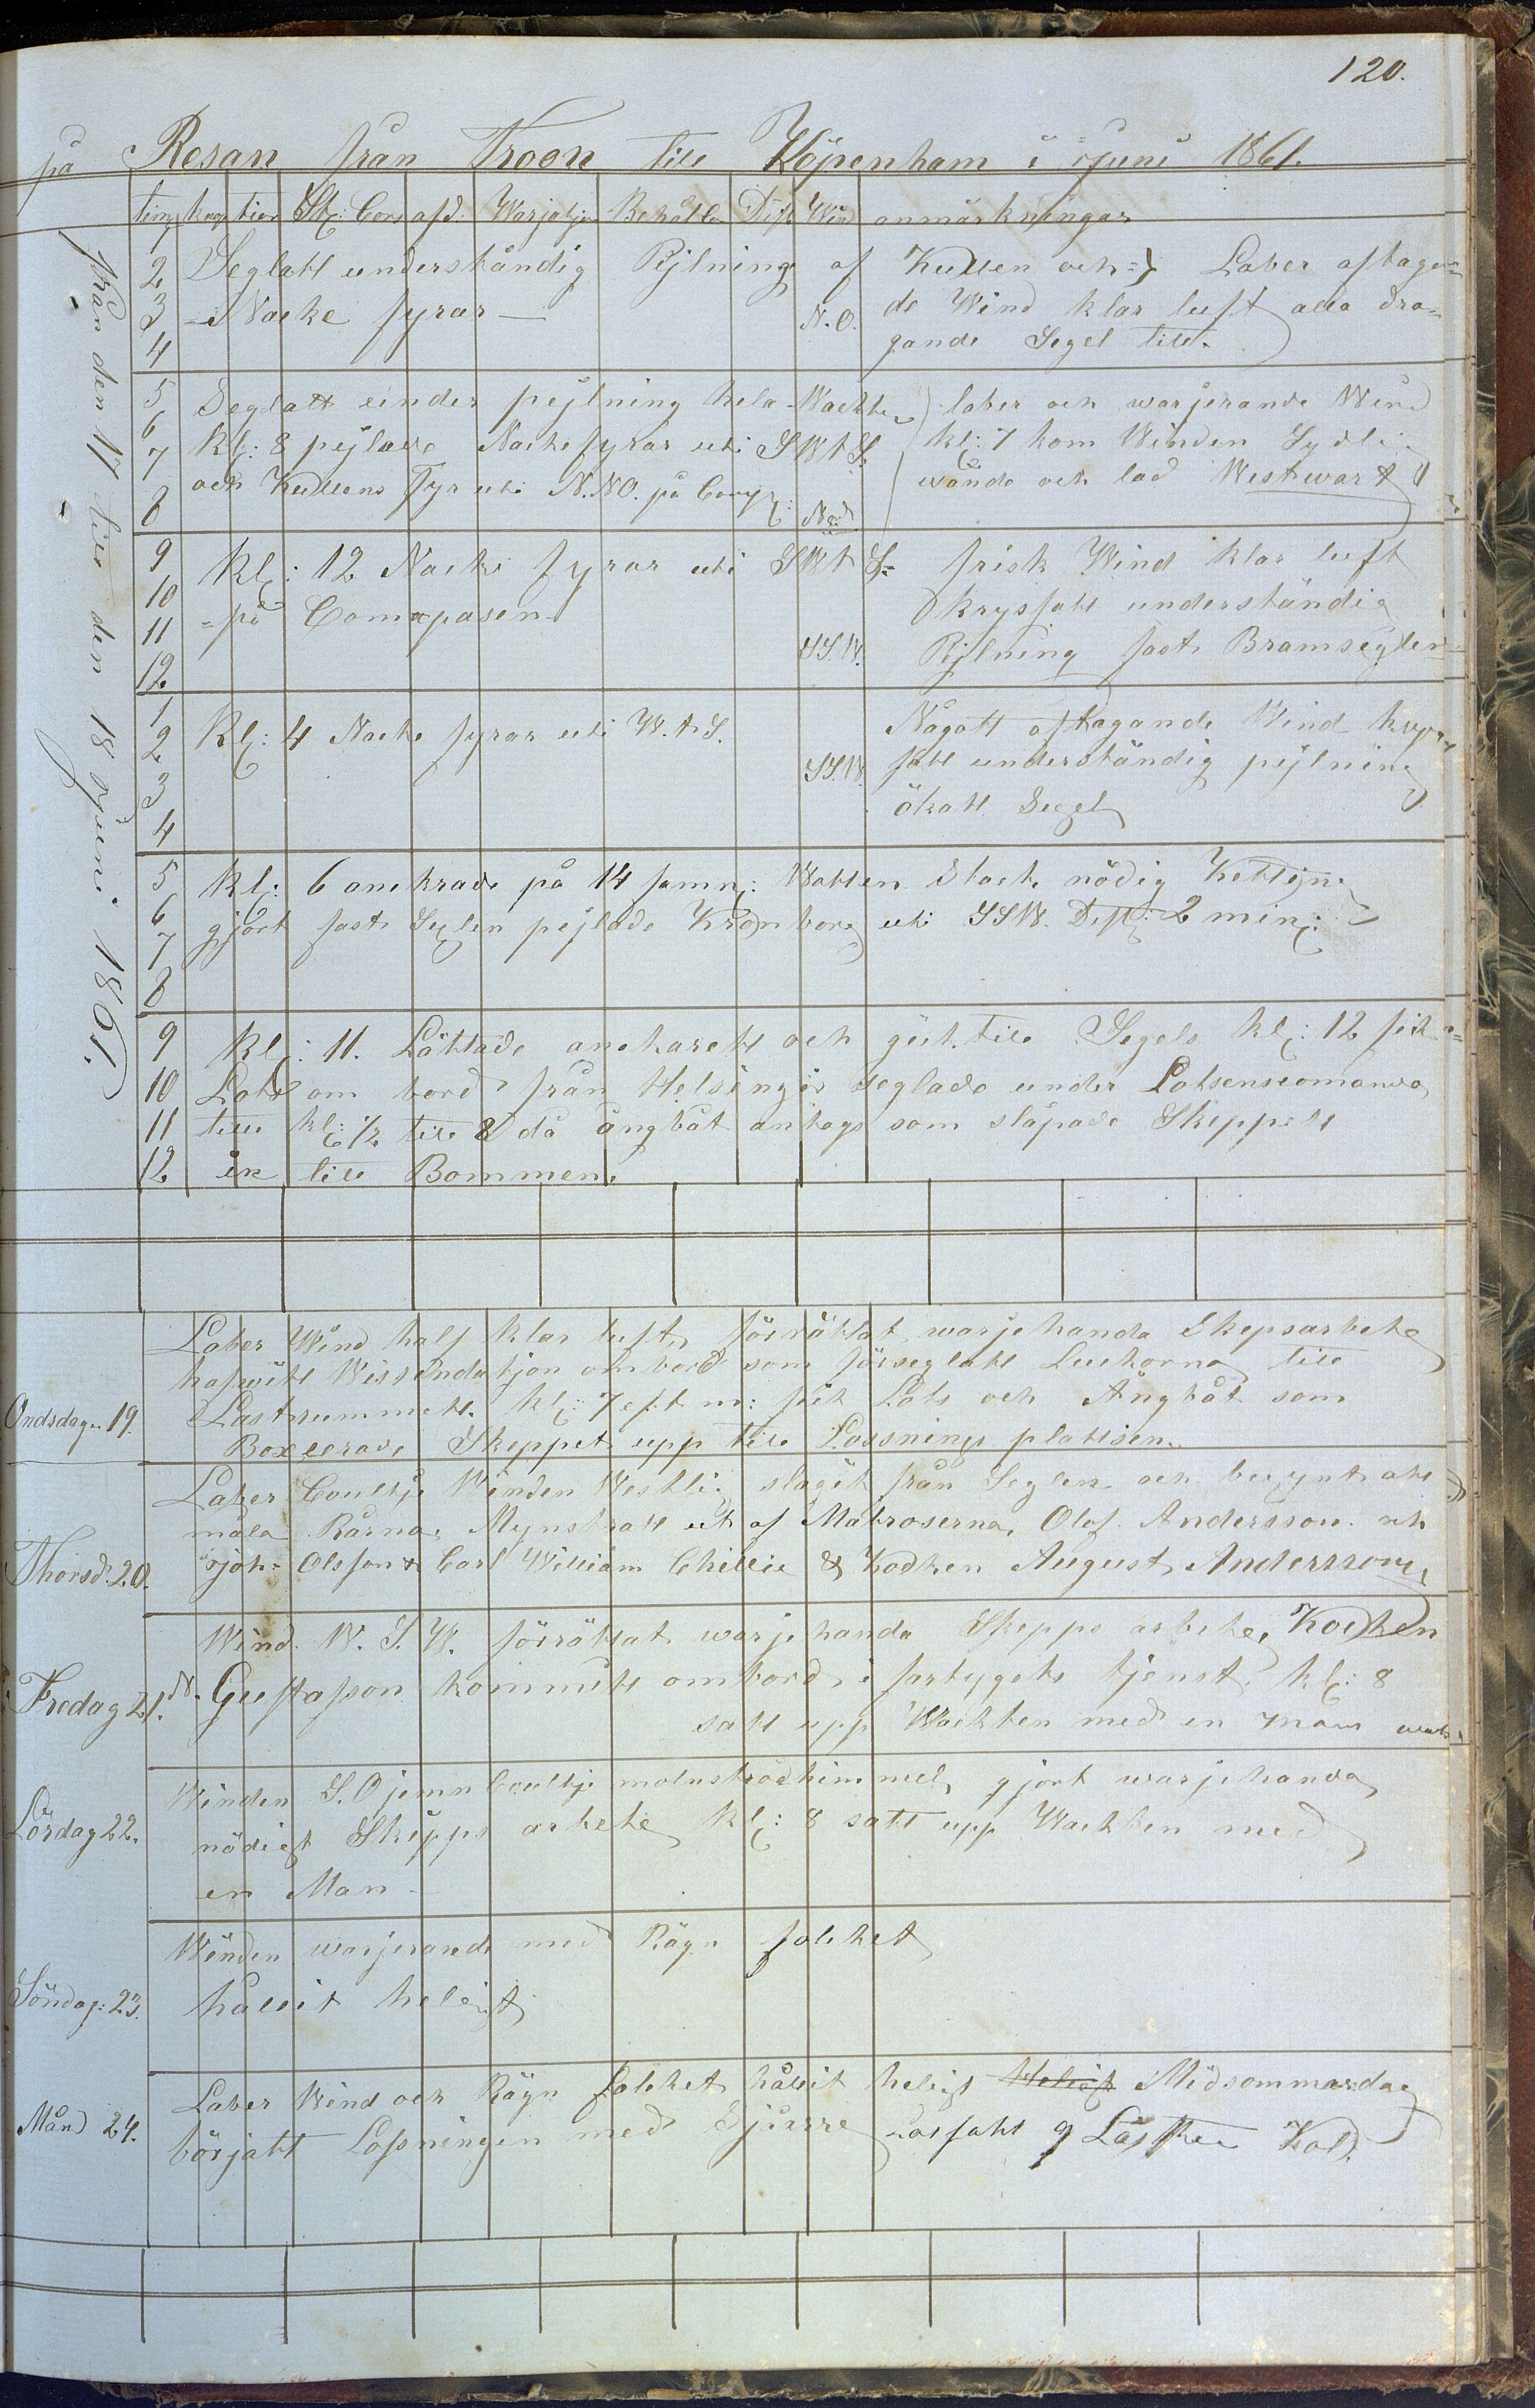 120.
på Resan från Troon till Köpenham i Juni 1861.
tim knop tior St: Cors afd. Warjatjon Behållen Dist Win anmärkningar
från den 17 till den 18 Juni 1861.
1
2 Seglatt underständig Pejlning af Kullen och Laber aftagan=
3 Nacke fyrar — N.O. de Wind klar luft alla dra=
4 gande Segel till.
5 Seglatt under pejlning hela Wackten laber och warjerande Wind
6
7 kl: 8 pejlade Nacke fyrar uti SWtS. kl: 7 kom Winden Sydlig
8 och Kullens Fyr uti N.NO. på Comp: wände och lad Westwart
9 kl: 12 Nacke fyrar uti SWtS= frisk Wind klar luft
10 =på Comapasen kryssatt underständig
11 SS.W. Pejlning fast Bramseglen
12
1 Något aftagande Wind kryss
2 kl: 4 Nacke fyrar uti W.t.S. SS.W. satt underständig pejlning
3 ökatt Segel
4
5 kl: 6 anckrade på 14 famn: Watten Stack nödig Kettijng
6 gjort fast Seglen pejlade Kronborg uti SSW. Dist: 2 min:
7
8
9 kl: 11. Lättade anckarett och gick till Segels kl: 12 fick
10 Lots om bord från Helsingör seglade under Lotsens comando
11 till kl: 1/2 till 8 då ångbåt antogs som släpade Skeppett
12 in till Bommen.
Laber Wind half klar luft, förrättat warjehanda Skepsarbete
hafwitt Wissendatjon ombord som förseglatt Luckorna till
Ondsdag. 19. Lastrummett. kl: 7 eft m: fick Lots och Ångbåt som
Boxcerade Skeppet upp till Lossnings plattsen.
Laber Coultje Winden Westlig slagit från Seglen och begynt att
måla Rårna. Mynstratt ut af Matroserna, Olof Andersson och
Thorsd. 20. Joh= Olsson & Carl William & Kocken August Andersson
Wind W.S.W. förrättat warjehanda Skepps arbete, Kocken
Fredag 21. N. Gustafson kommitt ombord i fartygets tjenst. kl: 8
satt upp Wackten med en man
Winden S.O jemn Coultje molnströdhimmel, gjort warjehanda
Lördag 22. nödigt Skepps arbete kl: 8 satt upp Wackten med
en Man
Winden warjerande med Rägn folcket
Söndag: 23. hållit heligt
Laber Wind och Rägn folcket hållit heligt Heligt Midsommardag
Månd 24. börjatt Lossningen med lossatt 9 Läster Kol.